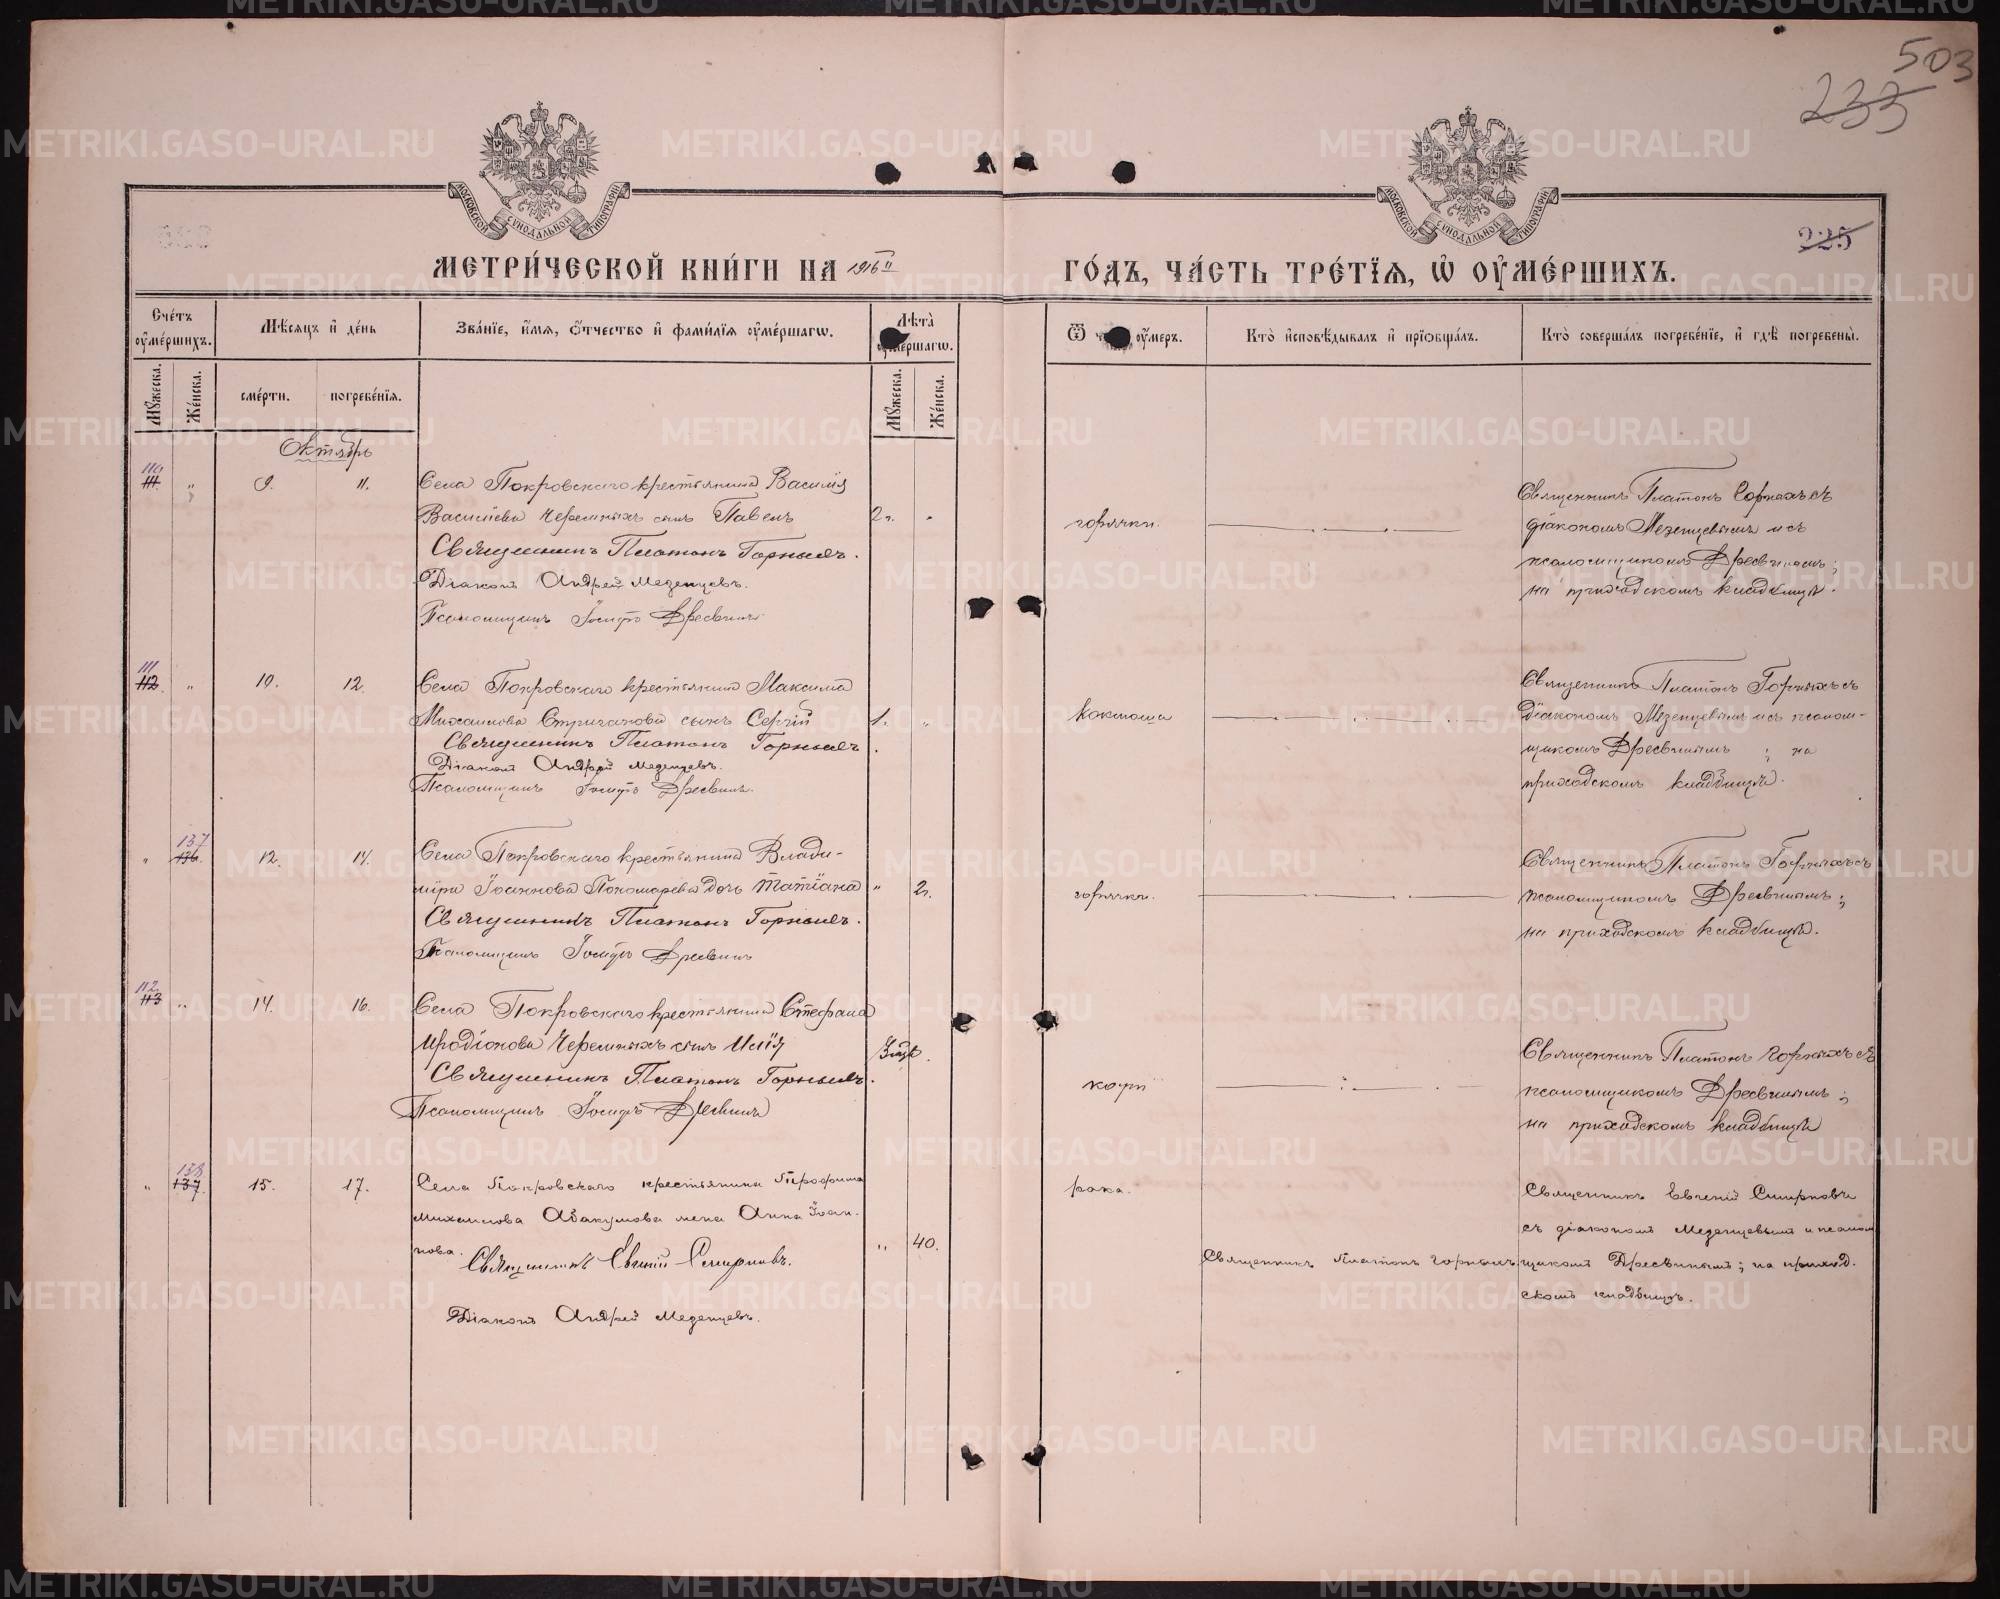 503
233
225
МОСКОВСКОЙ СУНОДАЛЬНОЙ ТИПОГРАФІИ
МОСКОВСКОЙ СУНОДАЛЬНОЙ ТИПОГРАФІИ
МЕТРИ́ЧЕСКОЙ КНИ́ГИ НА 1916 й ГО́ДЪ, ЧА́СТЬ ТРЕ́ТЇѦ, Ѡ҆ ОУ҆МЕ́РШИХЪ.
Сче́тъ оу҆ме́ршихъ.
Мѣ́сѧцъ и҆ де́нь
Зва́нїе, и҆́мѧ, ѻ҆́тчество и҆ фами́лїѧ оу҆ме́ршагѡ.
Лѣ́та оу҆ме́ршагѡ.
Ѿ чегѡ̀ оу҆́меръ.
Кто̀ и҆сповѣ́дывалъ и҆ прїѡбща́лъ.
Кто̀ соверша́лъ погребе́нїе, и҆ гдѣ̀ погребены̀.
Мꙋ́жеска.
Же́нска.
сме́рти.
погребе́нїѧ.
Мꙋ́жеска.
Же́нска.
Октябрь
110
111. " 9. 11. Села Покровскаго крестьянина Василія
Васильева Черемныхъ сынъ Павелъ 2 г. "
Священникъ Платонъ Горныхъ.
Діаконъ Андрей Мезенцевъ.
Псаломщикъ Іосифъ Дресвинъ
горячки.
Священникъ Платонъ Горныхъ съ
діакономъ Мезенцевымъ и съ
псаломщикомъ Дресвинымъ;
на приходскомъ кладбищѣ.
111
112. " 10. 12. Села Покровскаго крестьянина Максима
Михаилова Стриганова сынъ Сергій 1. "
Священникъ Платонъ Горныхъ
Діаконъ Андрей Мезенцевъ.
Псаломщикъ Іосифъ Дресвинъ.
коклюша
Священникъ Платонъ Горныхъ съ
діакономъ Мезенцевымъ и съ псалом-
щикомъ Дресвинымъ ; на
приходскомъ кладбищѣ.
137
" 136. 12. 14. Села Покровскаго крестьянина Влади-
міра Іоаннова Пономарева дочь Татіана " 2 г.
Священникъ Платонъ Горныхъ.
Псаломщикъ Іосифъ Дресвинъ
горячки.
Священникъ Платонъ Горныхъ съ
псаломщикомъ Дресвинымъ;
на приходскомъ кладбищѣ.
112
113 " 14. 16. Села Покровскаго крестьянина Стефана
Иродіонова Черемныхъ сынъ Илія
Священникъ Платонъ Горныхъ.
Псаломщикъ Іосифъ Дресвинъ
кори
Священникъ Платонъ Горныхъ съ
псаломщикомъ Дресвинымъ;
на приходскомъ кладбищѣ
138
" 137. 15. 17. Села Покровскаго крестьянина Трофима
Михаилова Абакумова жена Анна Іоан-
нова. " 40.
Священникъ Евгеній Смирновъ.
Діаконъ Андрей Мезенцевъ.
рака.
Священникъ Платонъ Горныхъ
Священникъ Евгеній Смирновъ
съ діакономъ Мезенцевымъ и псалом
щикомъ Дресвинымъ; на приход.
скомъ кладбищѣ.
METRIKI.GASO-URAL.RU